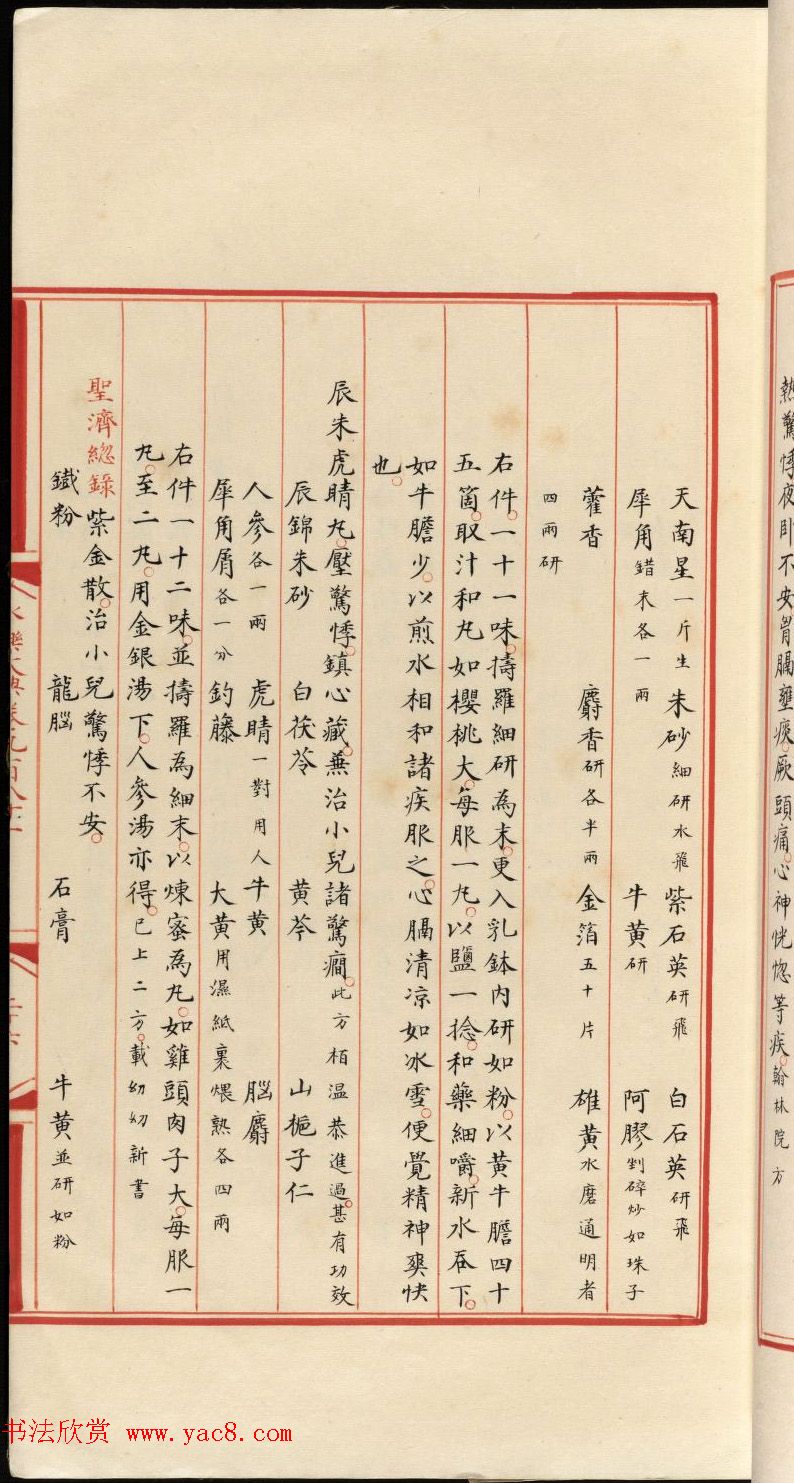 熱驚悸夜卧不安胷膈壅痰厥頭痛心神恍惚等疾翰林院方
天南星一斤生 朱砂細研水飛 紫石英研飛 白石英研飛
犀角錯末各一兩 牛黄研 阿膠剉碎炒如珠子
藿香 麝香研各半兩 金箔五十片 雄黄水磨通明者
四兩研
右件一十一味擣羅細研為末更入乳鉢内研如粉以黄牛膽四十
五箇取汁和丸如櫻桃大每服一丸以鹽一捻和藥細嚼新水吞下
如牛膽少以煎水相和諸疾服之心膈清凉如冰雪便覺精神爽快
也
辰朱虎睛丸壓驚悸鎮心藏兼治小兒諸驚癎此方栢温恭進過甚有功效
辰錦朱砂 白茯苓 黄芩 山梔子仁
人參各一兩 虎睛一對用人 牛黄 腦麝
犀角屑各一分 釣藤 大黄用濕紙裹煨熟各四兩
右件一十二味並擣羅為細末以煉蜜為丸如雞頭肉子大每服一
丸至二丸用金銀湯下人參湯亦得已上二方載幼幼新書
聖濟總錄紫金散治小兒驚悸不安
鐵粉 龍腦 石膏 牛黄並研如粉
永樂大典卷九百八十一
二十六
书法欣赏 www.yac8.com